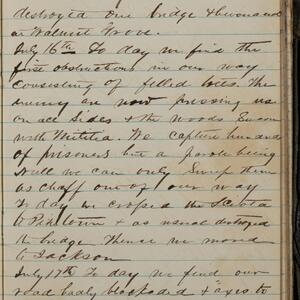 destroyed one bridge & thousand
or Walnut Grove.
July 16th To day we find the
first obstructions in our way
consisting of filled trees. The
enemy are now pressing us
on all sides & the woods swarm
with Militia. We capture hundred
of prisoners but a parole being
Null we can only Sweep them
as chaff out of our way
To day we crossed the Sciota
to Piketown & as usual destroyed
the bridge. Thence we moved
to Jackson
July 17th To day we find our
road badly blockaded & axes to